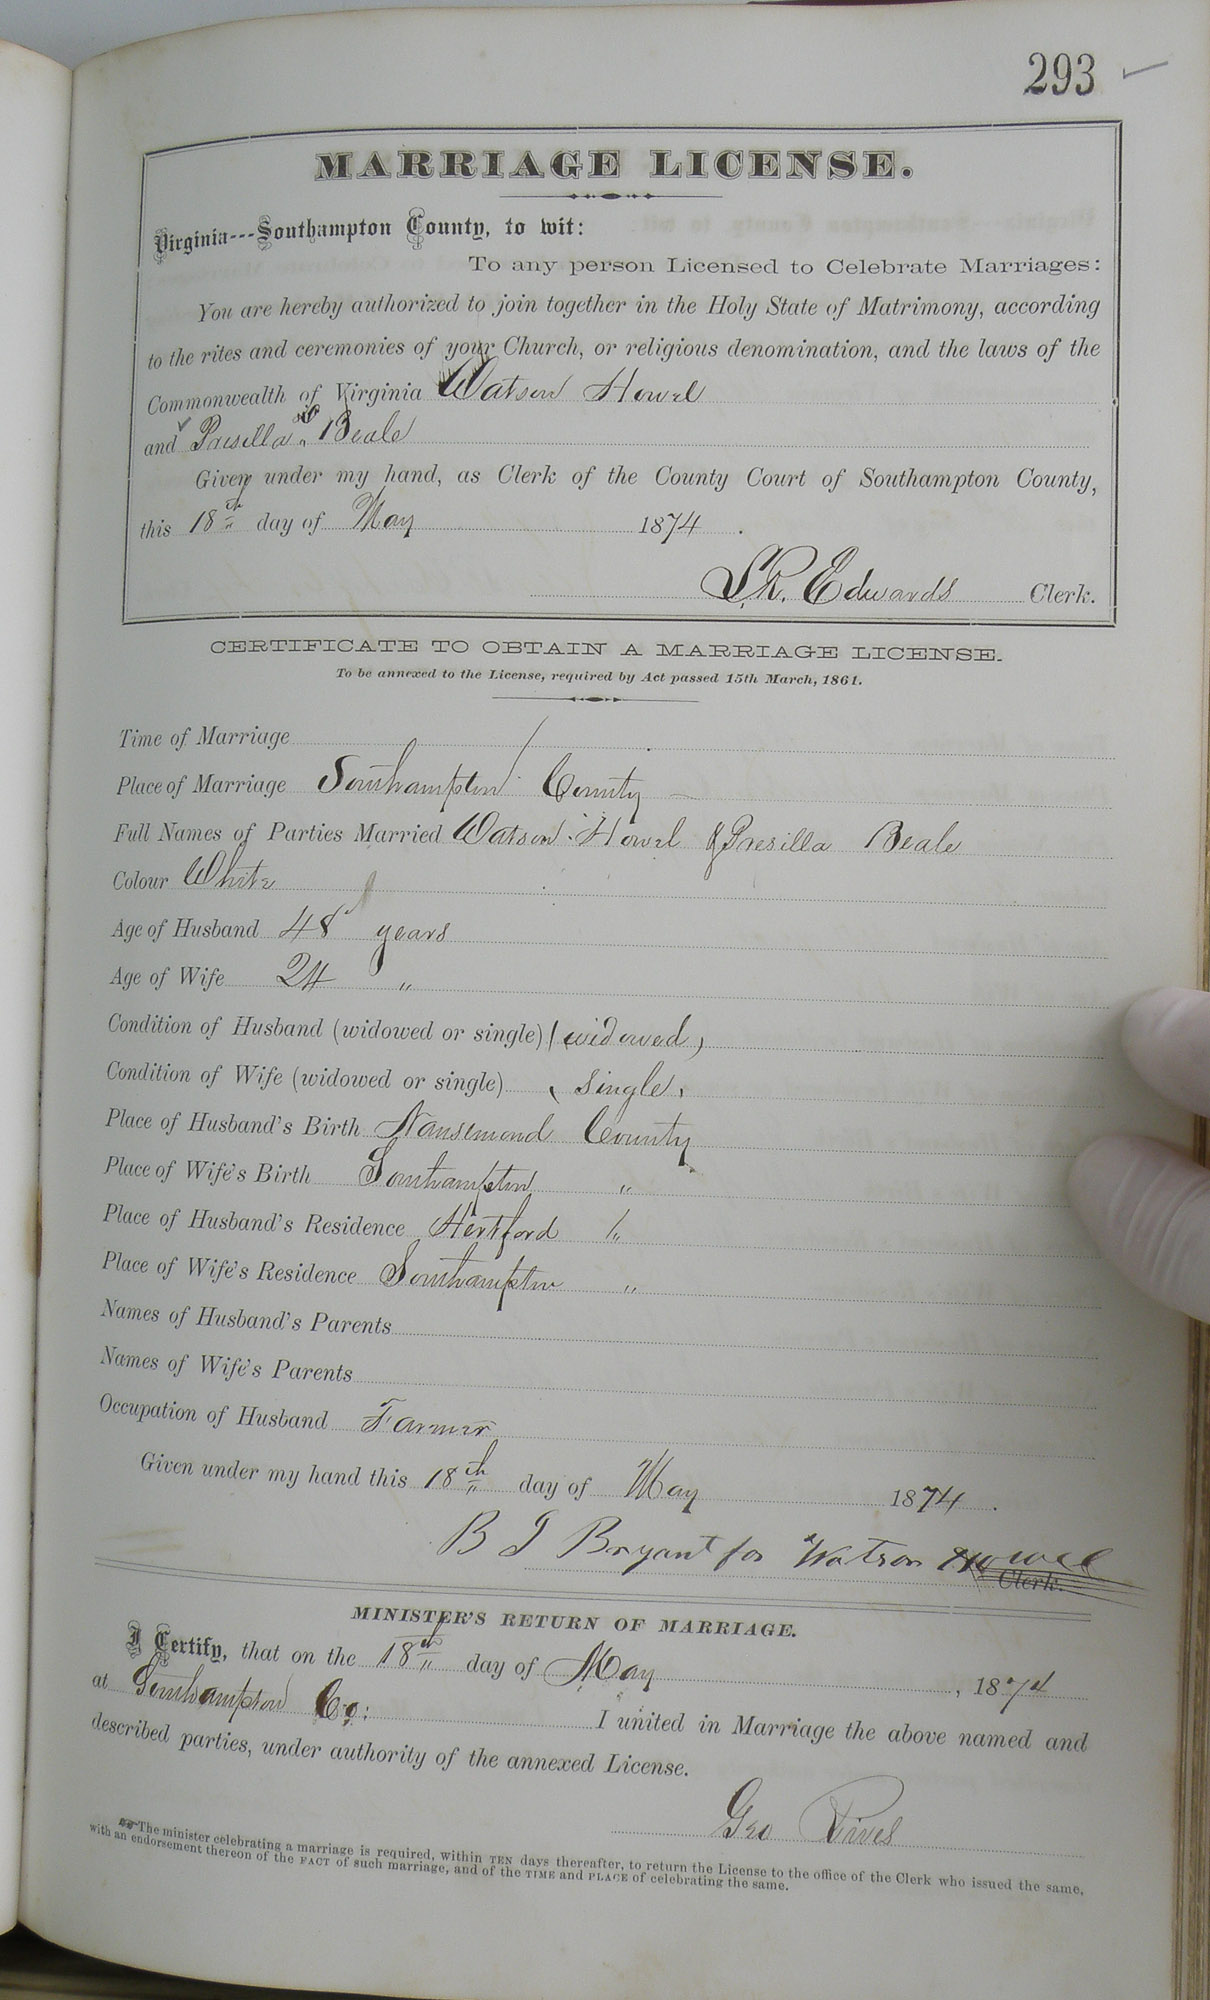 293
MARRIAGE LICENSE.
Virginia---Southampton County, to wit:
To any person Licensed to Celebrate Marriages:
You are hereby authorized to join together in the Holy State of Matrimony, according
to the rites and ceremonies of your Church, or religious denomination, and the laws of the
Commonwealth of Virginia Watson Howel
and Presilla Beale
Given under my hand, as Clerk of the County Court of Southampton County,
this 18th day of May 1874.
L.R. Edwards Clerk.
CERTIFICATE TO OBTAIN A MARRIAGE LICENSE.
To be annexed to the License, required by Act passed 15th March, 1861.
Time of Marriage
Place of Marriage Southampton County
Full Names of Parties Married Watson Howel & Presilla Beale
Colour White
Age of Husband 48 years
Age of Wife 24 "
Condition of Husband (widowed or single) (widowed)
Condition of Wife (widowed or single) (single)
Place of Husband's Birth Nansemond County
Place of Wife's Birth Southampton "
Place of Husband's Residence Hertford "
Place of Wife's Residence Southampton "
Names of Husband's Parents
Names of Wife's Parents
Occupation of Husband Farmer
Given under my hand this 18th day of May 1874.
B J Bryant for Watson Howel
Clerk.
MINISTER'S RETURN OF MARRIAGE.
I Certify, that on the 18th day of May, 1874
at Southampton Co: I united in Marriage the above named and
described parties, under authority of the annexed License.
Geo Rives
The minister celebrating a marriage is required, within TEN days thereafter, to return the License to the office of the Clerk who issued the same,
with an endorsement thereon of the FACT of such marriage, and of the TIME and PLACE of celebrating the same.